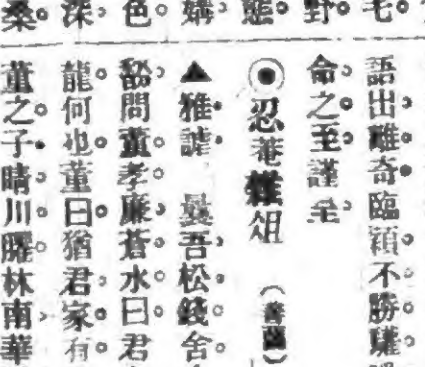 毛
野
態
媾
色
深
桑
語出雖奇臨穎不勝驩
命之至謹呈
◉忍菴雜俎（善國）
▲雅謔 曩吾松錢舍
谿問董孝廉蒼水曰君
龍何也董曰猶君家有
董之子晴川曜林南華